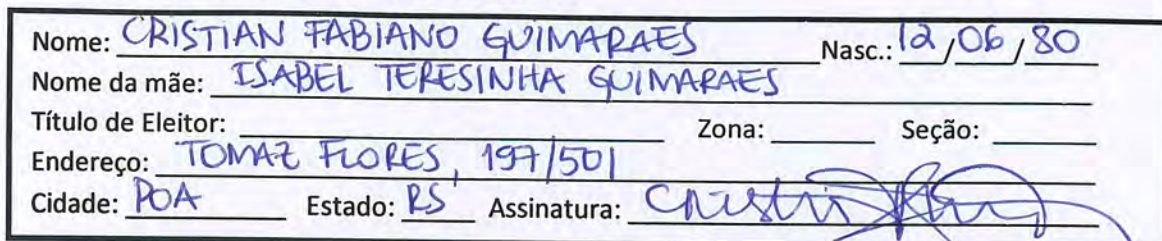 Nome: CRISTIAN FABIANO GUIMARAES Nasc.: 12/06/80
Nome da mãe: ISABEL TERESINHA GUIMARAES
Título de Eleitor: Zona: Seção:
Endereço: TOMAZ FLORES, 197/501
Cidade: POA Estado: RS Assinatura: